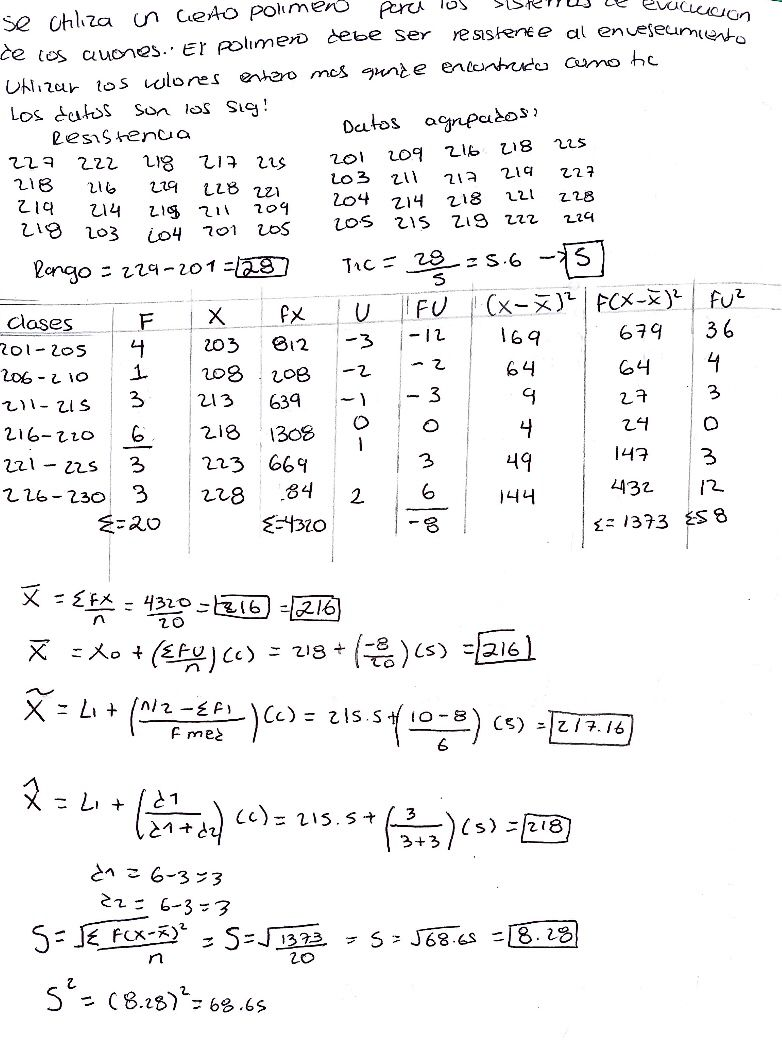 se utiliza un cierto polimero para los sistemas de evacuacion
de los aviones.. El polimero debe ser resistente al envesecimiento
Utilizar los valores entero mas grande encontrado como tic
Los datos son los sig!
Resistencia
Datos agrupados:
227 222 218 217 225
218 216 229 228 221
219 214 218 211 209
218 203 204 201 205
201 209 216 218 225
203 211 217 219 227
204 214 218 221 228
205 215 218 222 229
Rango = 229-201 = 28
TIC = 28/5 = 5.6 → 5
clases F X fX U FU (X-X̄)² F(X-X̄)² FU²
201-205 4 203 812 -3 -12 169 679 36
206-210 1 208 208 -2 -2 64 64 4
211-215 3 213 639 -1 -3 9 27 3
216-220 6 218 1308 0 0 4 24 0
221-225 3 223 669 1 3 49 147 3
226-230 3 228 .84 2 6 144 432 12
Σ=20 Σ=4320 -8 Σ=1373 Σ58
X̄ = Σfx/n = 4320/20 = 216 = 216
X̄ = X0 + (ΣFU/n)(c) = 218 + (-8/20)(5) = 216
X̃ = L1 + (n/2 - ΣF1/Fmed)(c) = 215.5 + (10-8/6)(5) = 217.16
X̂ = L1 + (d1/d1+d2)(c) = 215.5 + (3/3+3)(5) = 218
d1 = 6-3=3
d2 = 6-3=3
S = √Σ F(X-X̄)²/n = S = √1373/20 = S = √68.65 = 8.28
S² = (8.28)² = 68.65